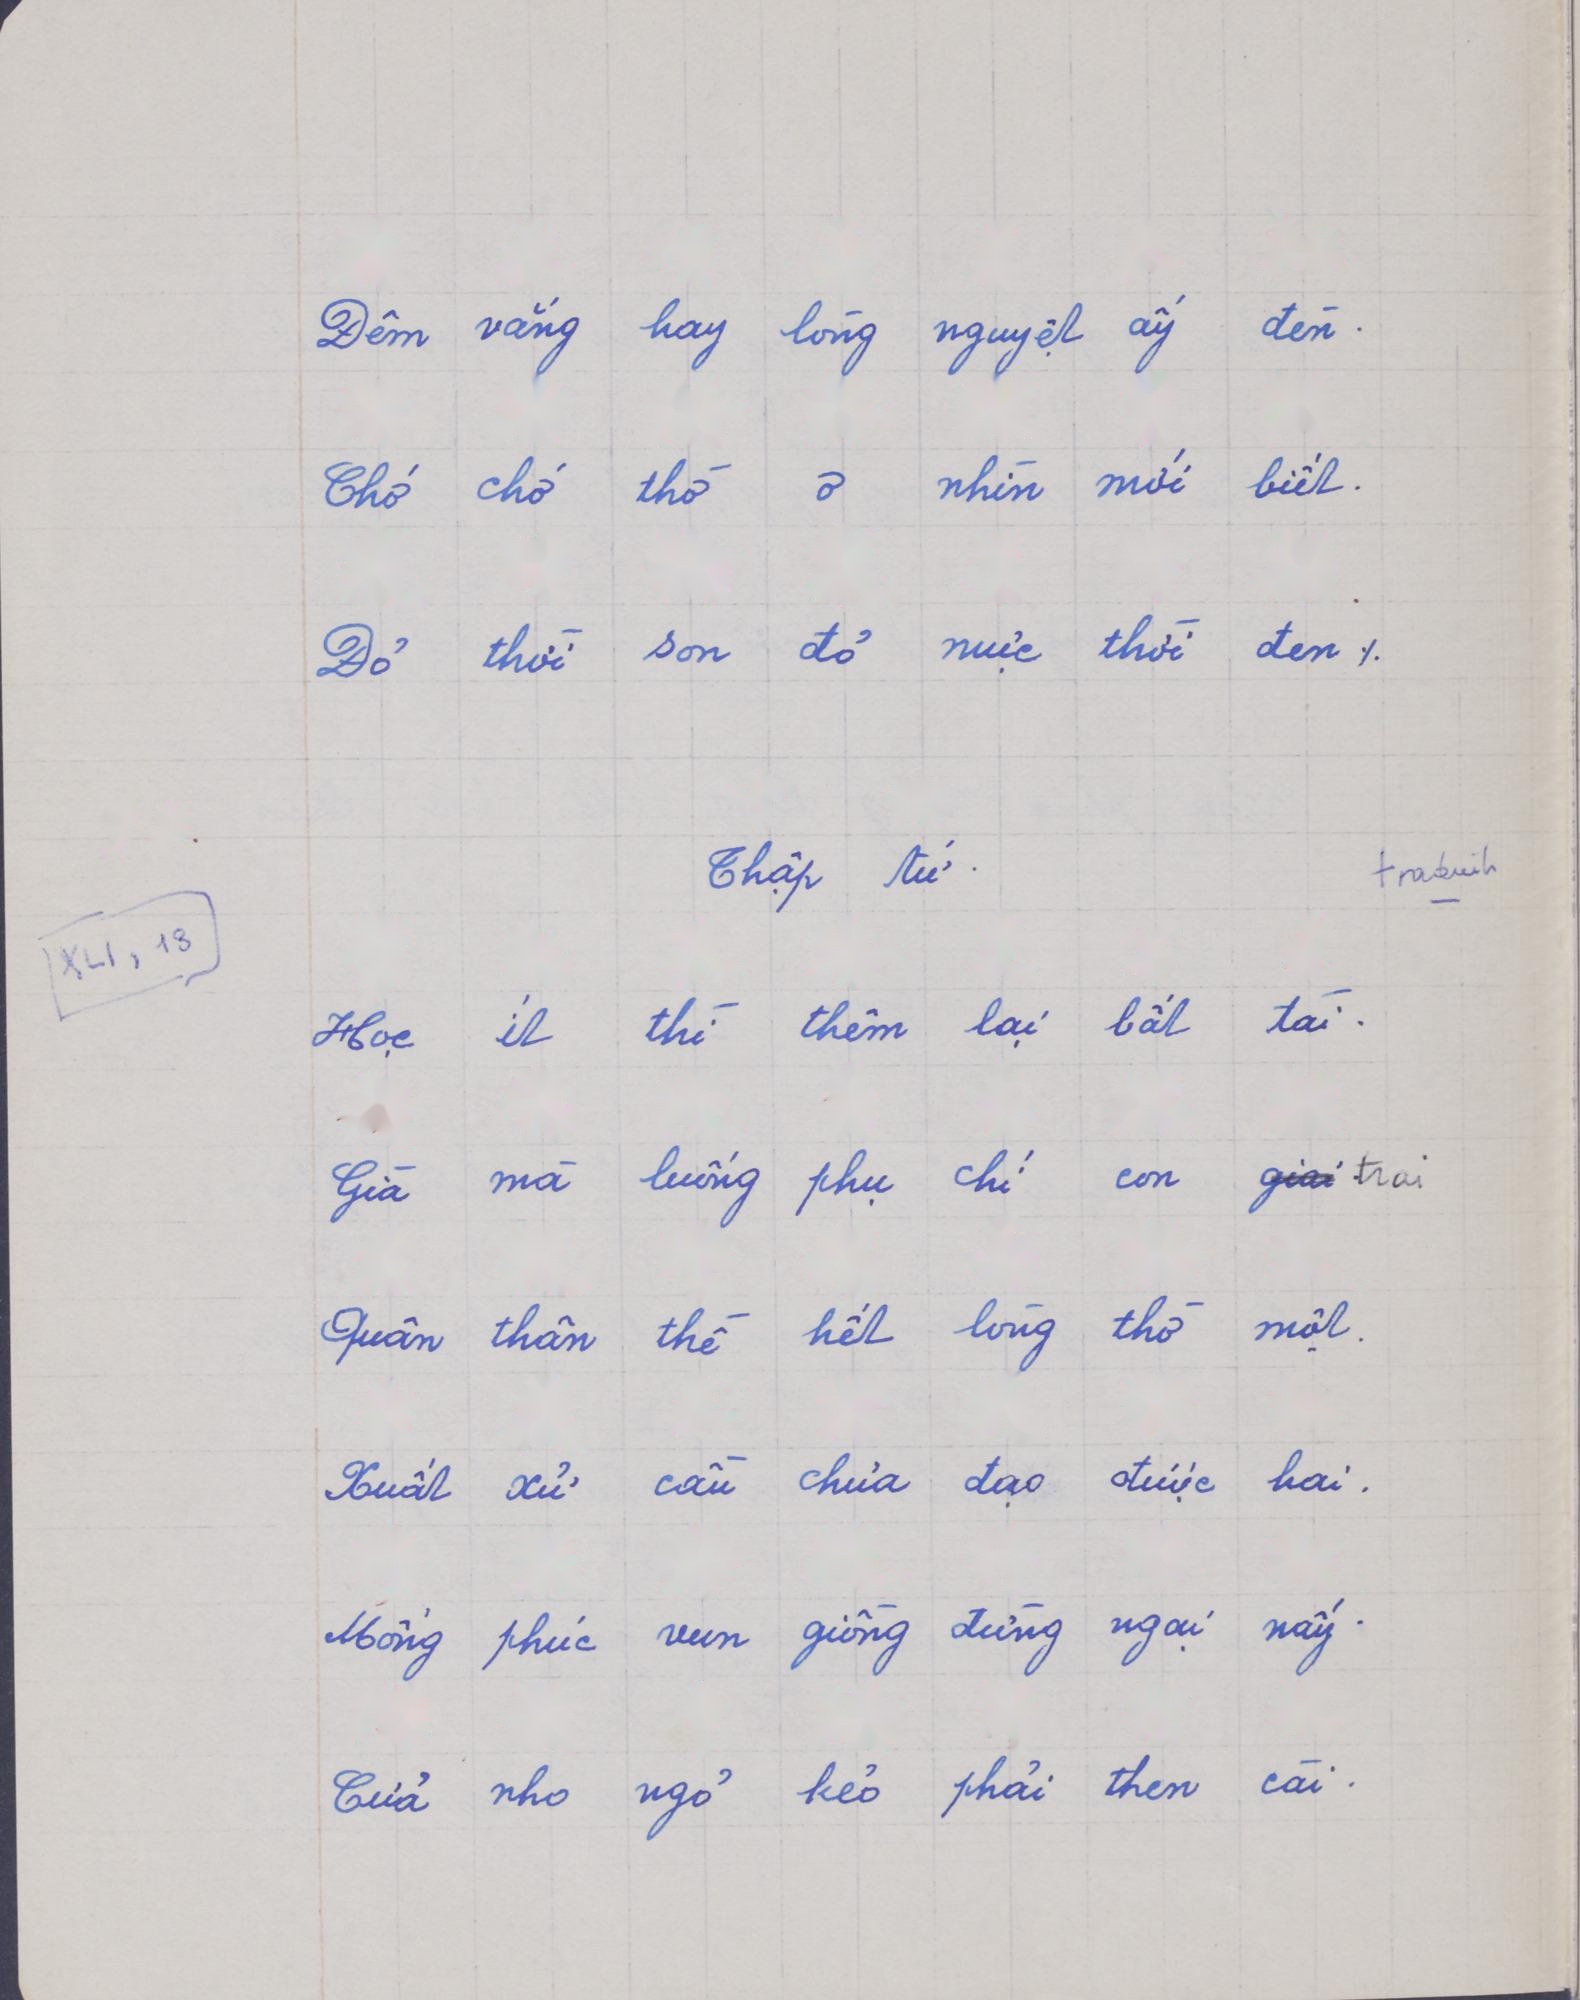 Đêm vắng hay lòng nguyệt ấy đèn.
Chớ chớ thờ ơ nhìn mới biết.
Đỏ thời son đỏ mực thời đen ./.
Thập tứ.
XLI, 13
Học ít thì thêm lại bất tài.
Già mà luống phụ chí con giai trai
Quân thân thề hết lòng thờ một.
Xuất xử cầu chưa đạo được hai.
Mống phúc vun giồng đừng ngại nấy.
Cửa nho ngỏ kẻo phải then cài.